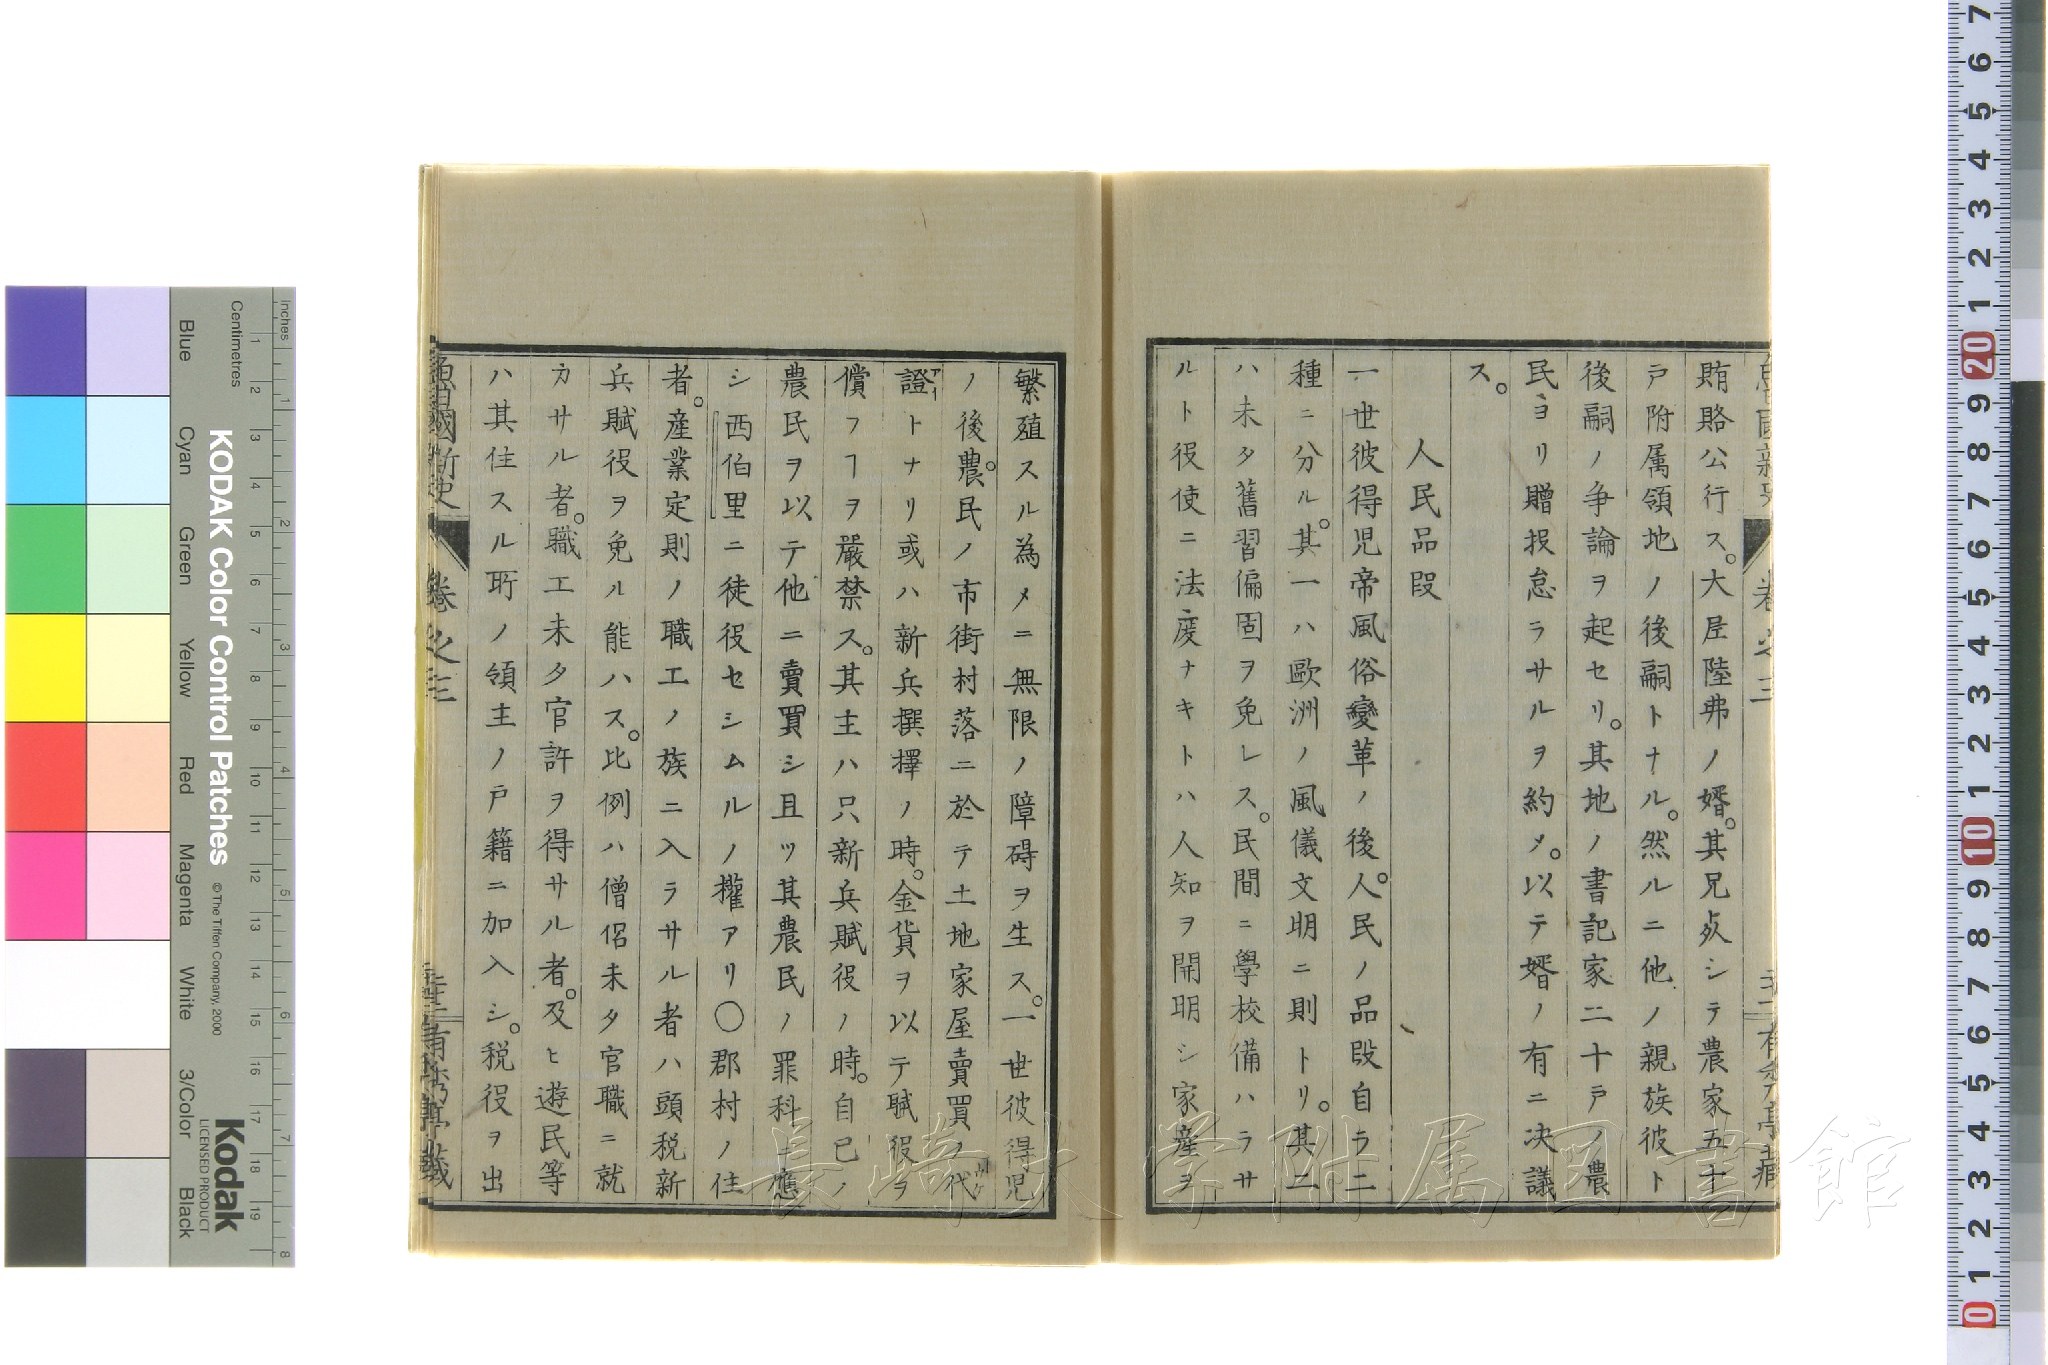 賄賂公行ス。大臣陸弗ノ婿。其兄歿シテ農家五十
戸附属領地ノ後嗣トナル。然ルニ他ノ親族彼ト
後嗣ノ争論ヲ起セリ。其地ノ書記家二十戸ノ農
民ヨリ贈投怠ラサルヲ約メ。以テ婿ノ有ニ决議
ス。
人民品段
一世彼得児帝風俗變革ノ後人。人民ノ品段自ラ二
種ニ分ル。其一ハ歐洲ノ風儀文明ニ則トリ。其二
ハ未タ舊習偏固ヲ免レス。民間ニ學校備ハラサ
ルト役使ニ法度ナキトハ人知ヲ開明シ家産ヲ
繁殖スル為メニ無限ノ障碍ヲ生ス。一世彼得児
ノ後農。民ノ市街村落ニ於テ土地家屋賣買ノ代
證トナリ或ハ新兵撰擇ノ時。金貨ヲ以テ賦役ヲ
償フヿヲ嚴禁ス。其主ハ只新兵賦役ノ時。自已ノ
農民ヲ以テ他ニ賣買シ且ツ其農民ノ罪科ニ應
シ西伯里ニ徒役セシムルノ權アリ〇郡村ノ住
者。産業定則ノ職工ノ族ニ入ラサル者ハ頭税新
兵賦役ヲ免ル能ハス。比例ハ僧侶未タ官職ニ就
カサル者。職工未タ官許ヲ得サル者。及ヒ遊民等
ハ其住スル所ノ領主ノ戸籍ニ加入シ。税役ヲ出
魯西國新史 卷之三 有鄰亭藏
長崎大学附属図書館
KODAK Color Control Patches
© The Tiffen Company, 2000
Kodak
LICENSED PRODUCT
Centimetres
inches
Blue
Cyan
Green
Yellow
Red
Magenta
White
3/Color
Black